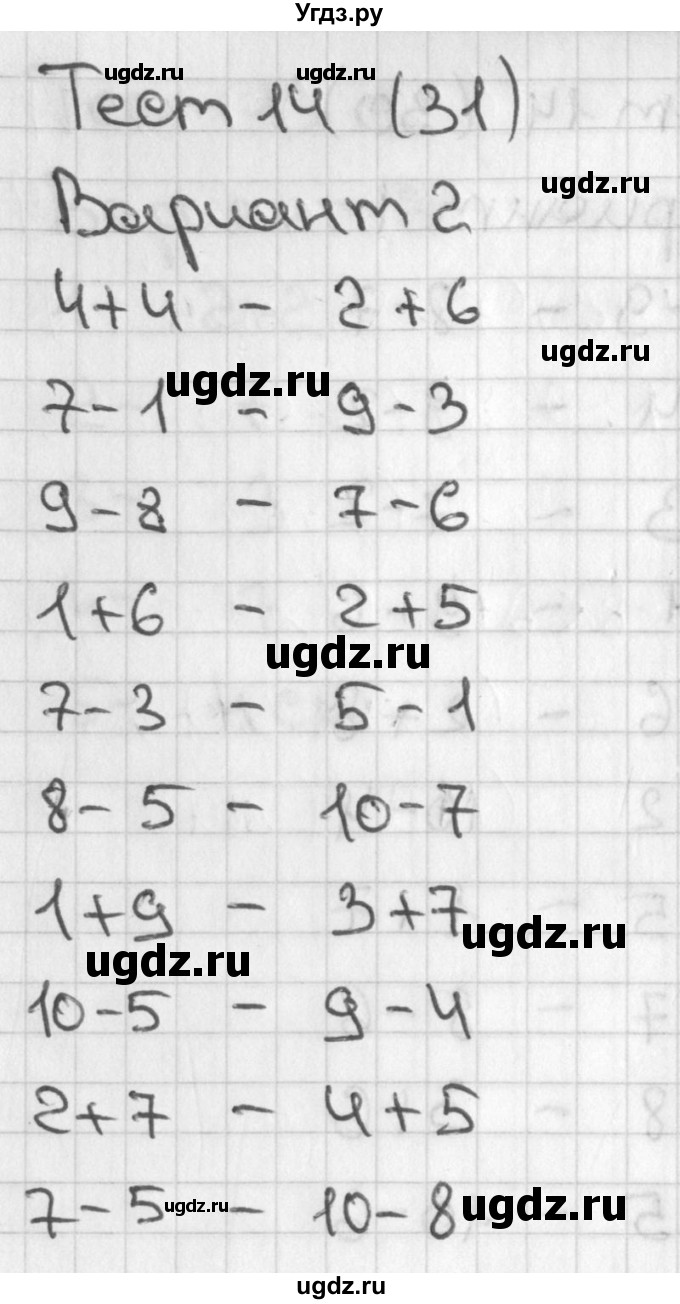 Угдз.ру
Тест 14 (31)
ugdz.ru ugdz.ru
Вариант 2
ugdz.ru
4+4 - 2+6
ugdz.ru
ugdz.ru
7-1 - 9-3
9-8 - 7-6
1+6 - 2+5
ugdz.ru
7-3 - 5-1
8-5 - 10-7
1+9 - 3+7
ugdz.ru
ugdz.ru
10-5 - 9-4
2+7 - 4+5
7-5 - 10-8
ugdz.ru ugdz.ru
ugdz.ru